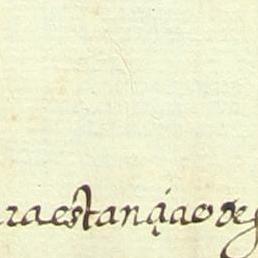 raestançiaodeg